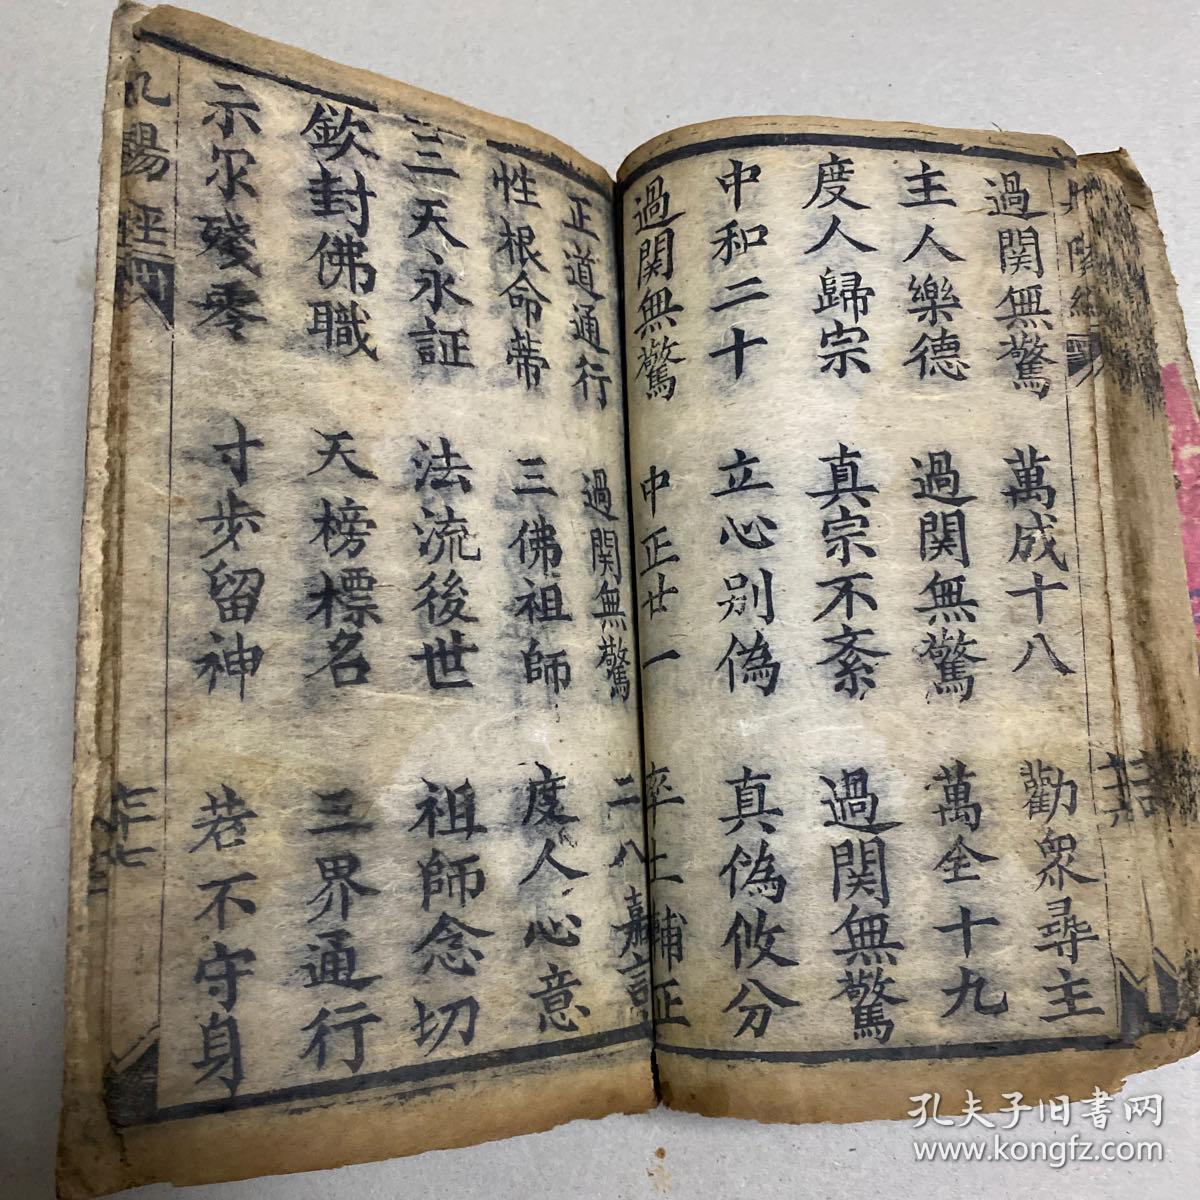 過関無驚 萬成十八 勸衆尋主
主人樂德 過関無驚 萬全十九
度人歸宗 真宗不紊 過関無驚
中和二十 立心别偽 真偽攸分
過関無驚 中正廿一 率土輔正
正道通行 過関無驚 二八嘉言
性根命蒂 三佛祖師 度人心意
三天永証 法流後世 祖師念切
欽封佛職 天榜標名 三界通行
示尔殘零 寸步留神 若不守身
九陽經
孔夫子旧書网
www.kongfz.com